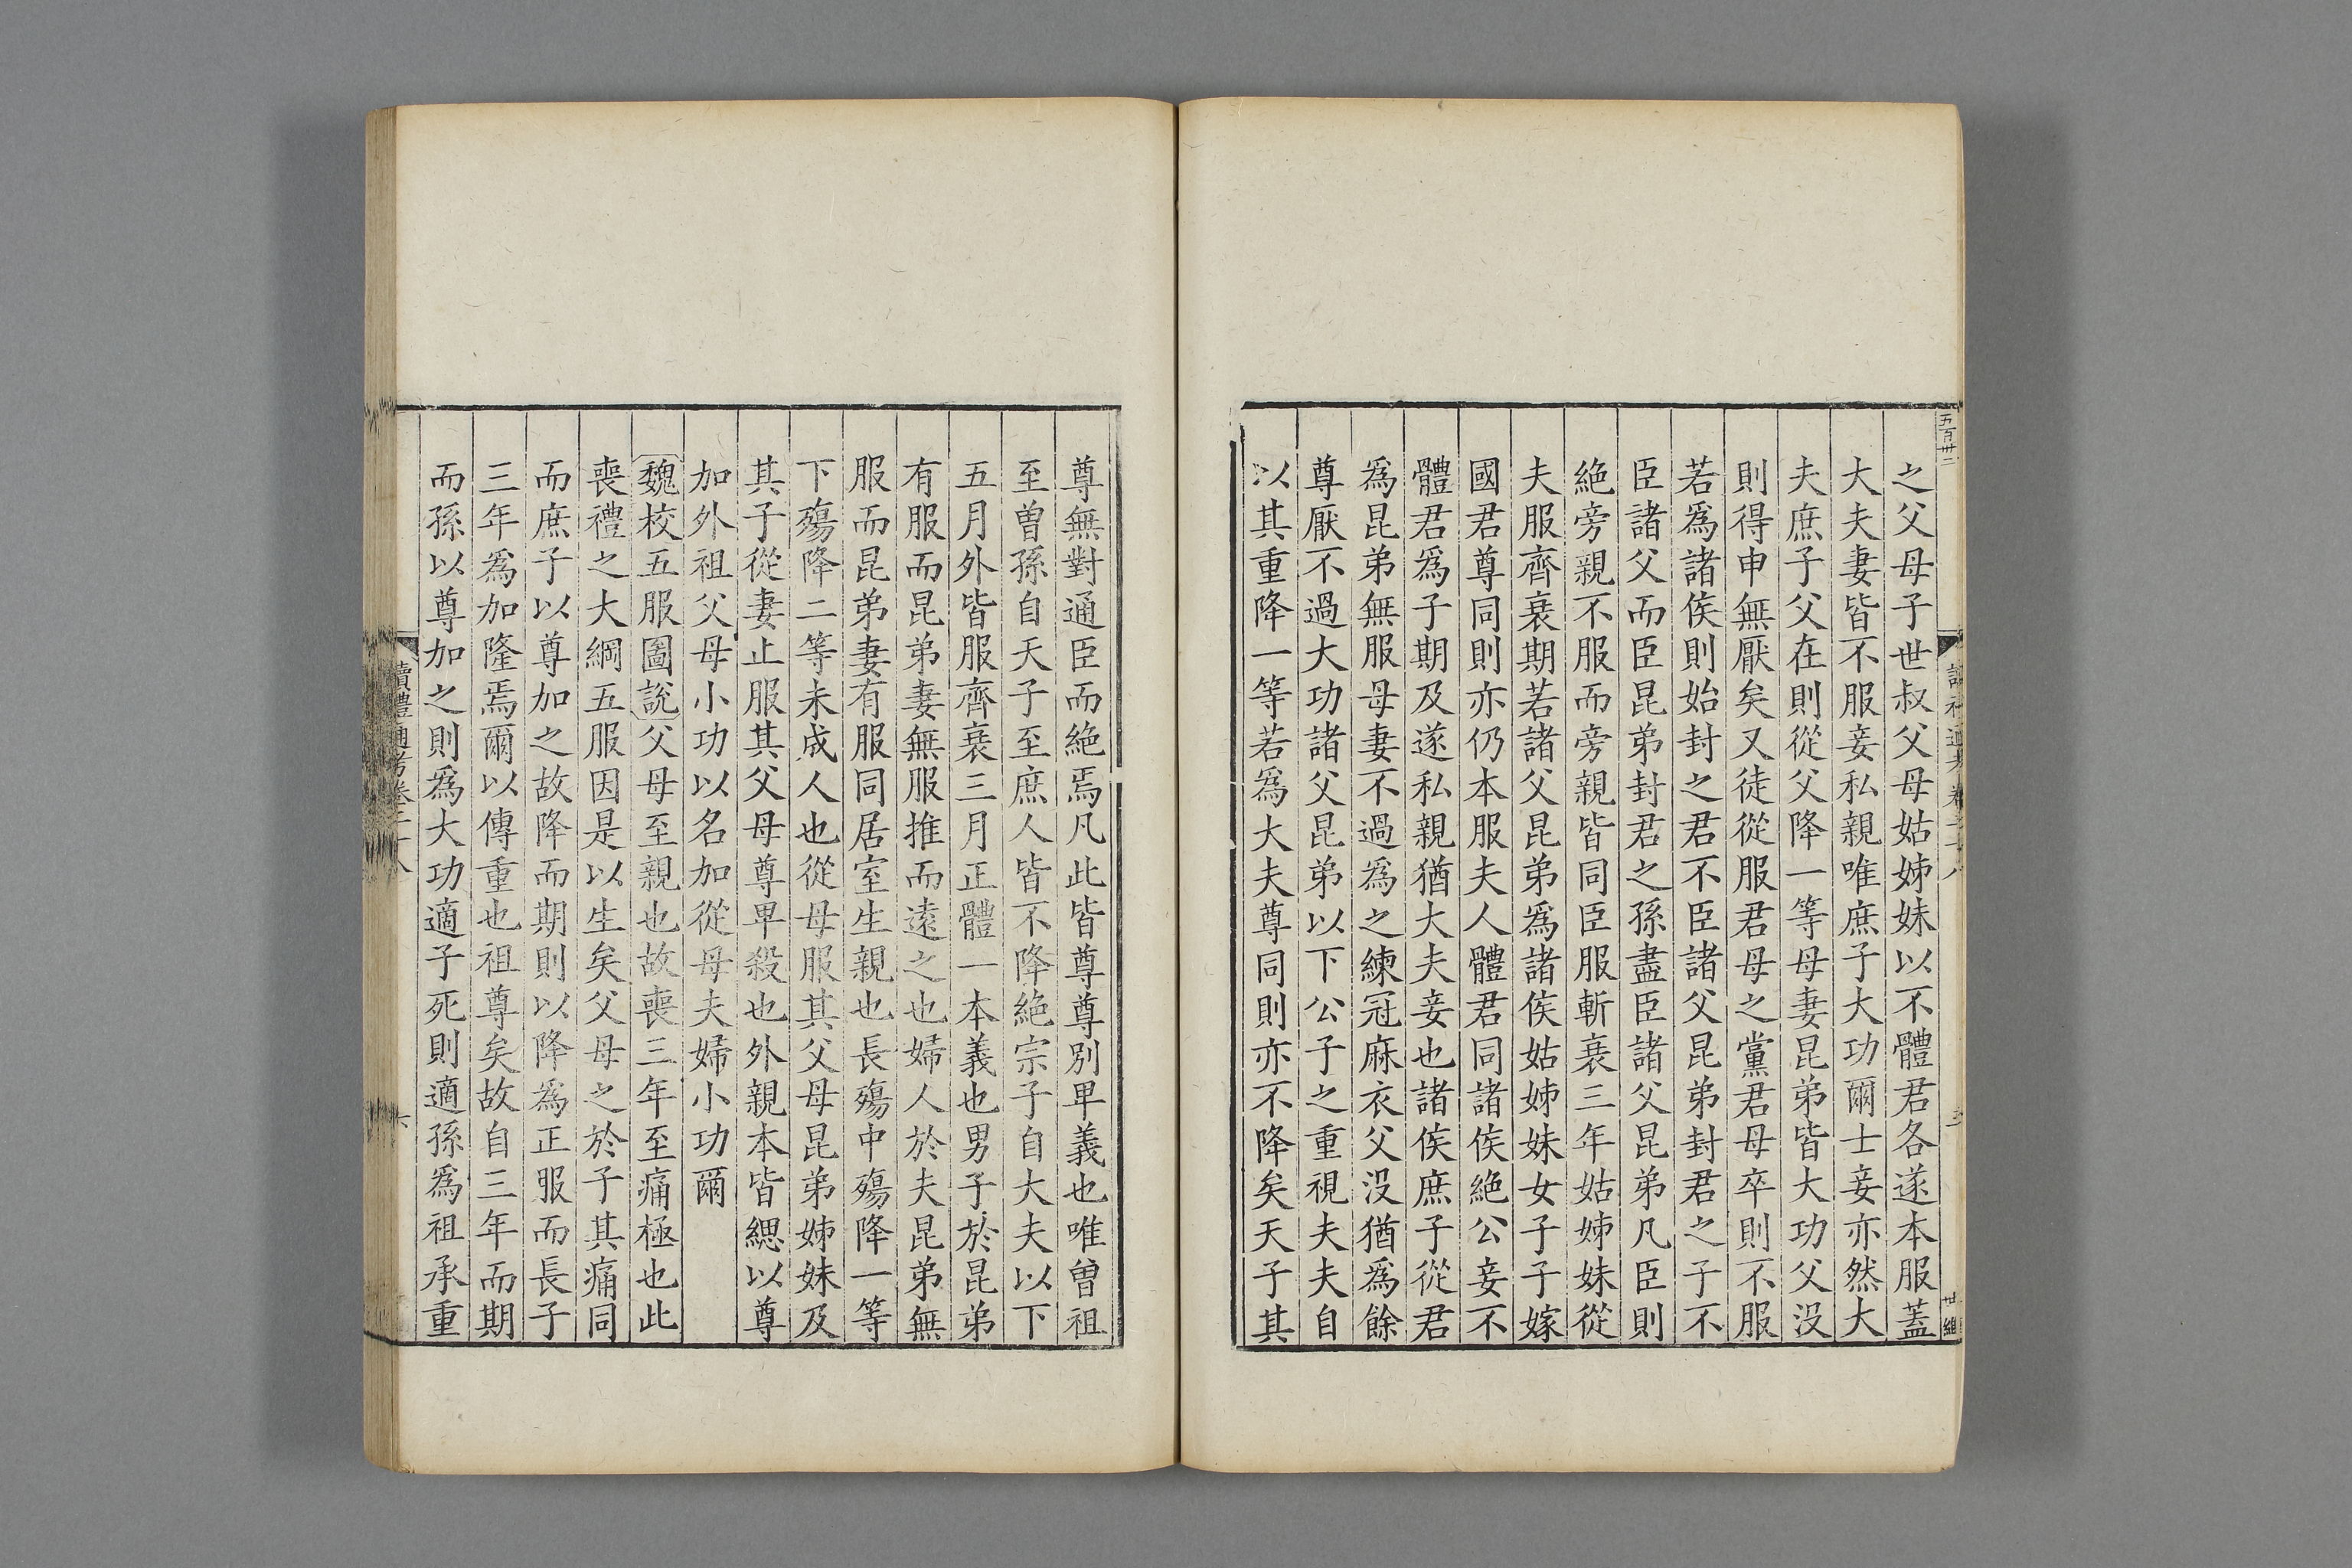 五百卅二
之父母子世叔父母姑姊妹以不體君各遂本服蓋
大夫妻皆不服妾私親唯庶子大功爾士妾亦然大
夫庶子父在則從父降一等母妻昆弟皆大功父没
則得申無厭矣又徒從服君母之黨君母卒則不服
若爲諸侯則始封之君不臣諸父昆弟封君之子不
臣諸父而臣昆弟封君之孫盡臣諸父昆弟凡臣則
絶旁親不服而旁親皆同臣服斬衰三年姑姊妹從
夫服齊衰期若諸父昆弟爲諸侯姑姊妹女子子嫁
國君尊同則亦仍本服夫人體君同諸侯絶公妾不
體君爲子期及遂私親猶大夫妾也諸侯庶子從君
爲昆弟無服母妻不過爲之練冠麻衣父没猶爲餘
尊厭不過大功諸父昆弟以下公子之重視夫夫自
以其重降一等若爲大夫尊同則亦不降矣天子其
尊無對通臣而絶焉凡此皆尊尊別卑義也唯曾祖
至曾孫自天子至庶人皆不降絶宗子自大夫以下
五月外皆服齊衰三月正體一本義也男子於昆弟
有服而昆弟妻無服推而遠之也婦人於夫昆弟無
服而昆弟妻有服同居室生親也長殤中殤降一等
下殤降二等未成人也從母服其父母昆弟姊妹及
其子從妻止服其父母尊卑殺也外親本皆緦以尊
加外祖父母小功以名加從母夫婦小功爾
魏校五服圖說父母至親也故喪三年至痛極也此
喪禮之大綱五服因是以生矣父母之於子其痛同
而庶子以尊加之故降而期則以降爲正服而長子
三年爲加隆焉爾以傳重也祖尊矣故自三年而期
而孫以尊加之則爲大功適子死則適孫爲祖承重
讀禮通考卷二十八
六